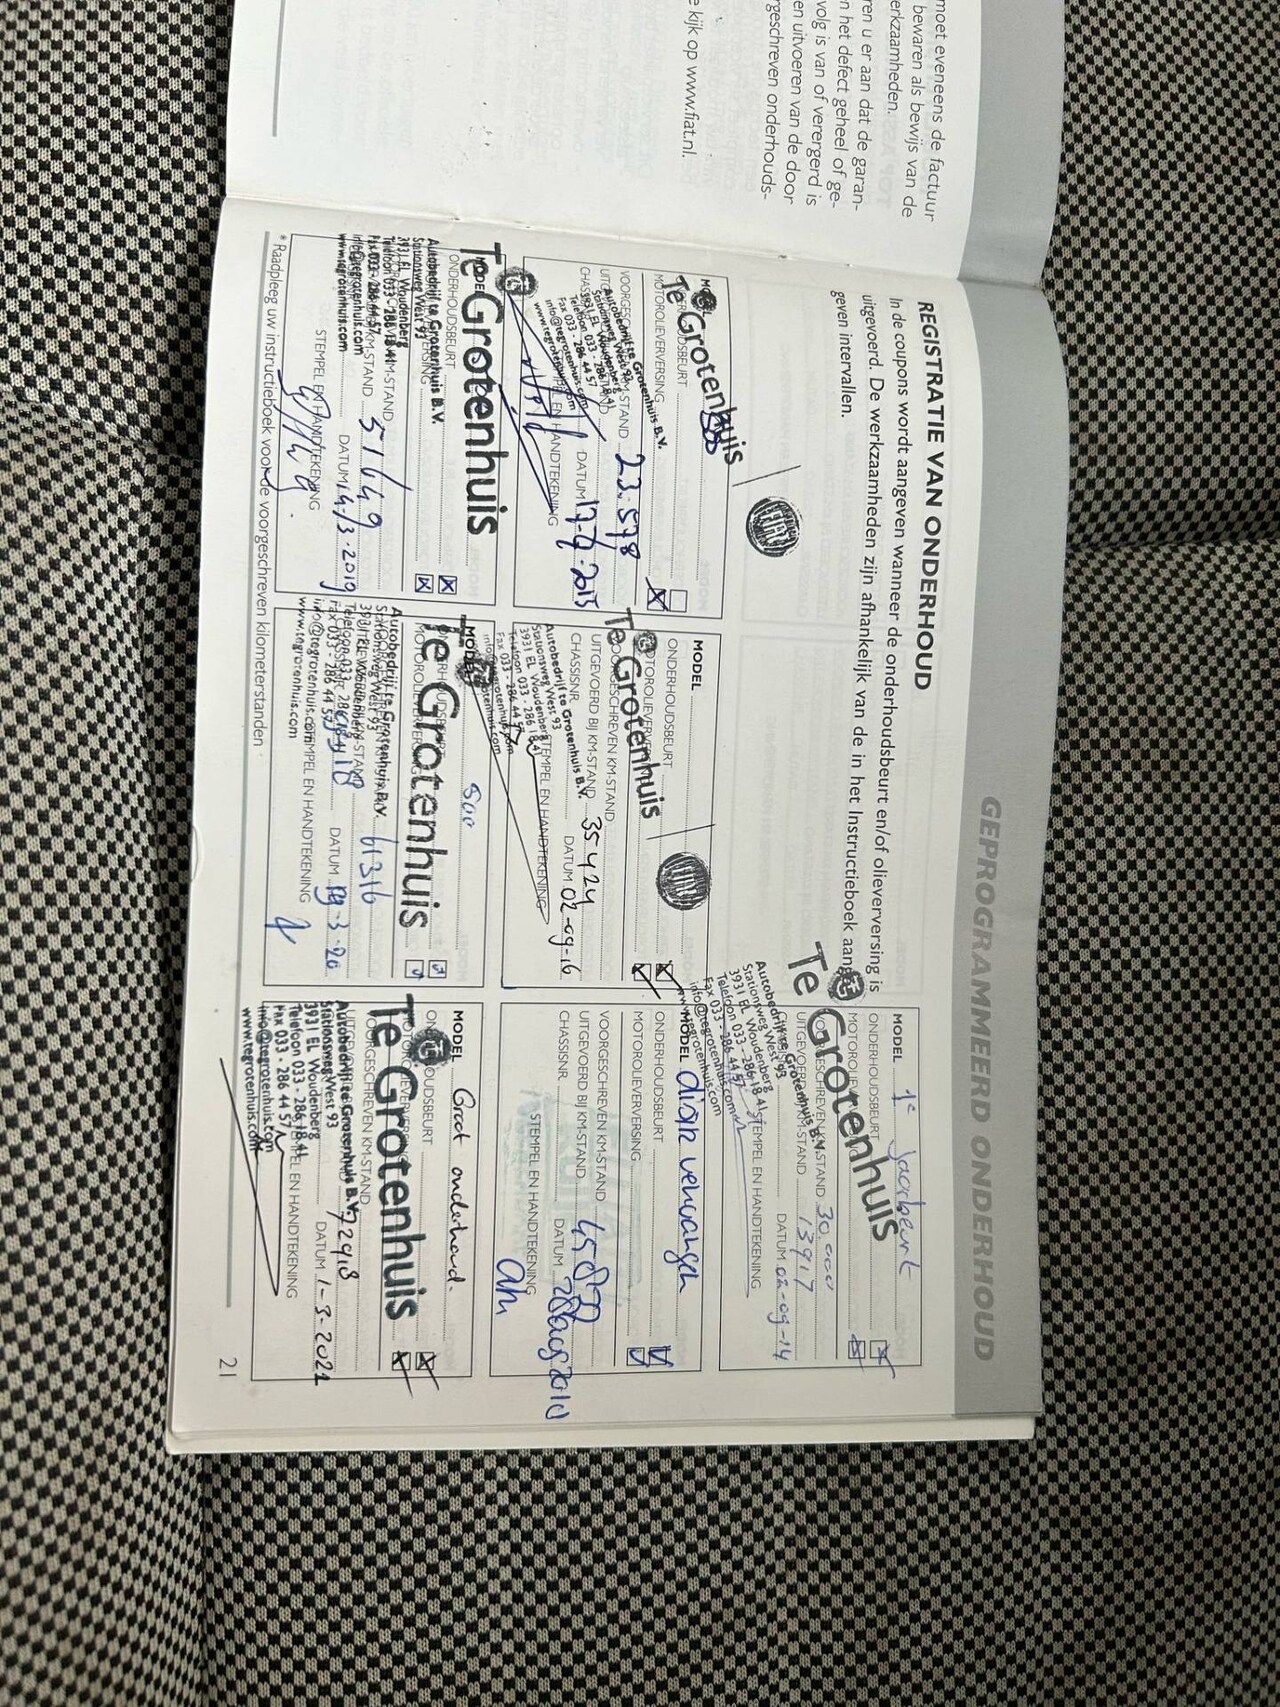 moet eveneens de factuur
bewaren als bewijs van de
erkzaamheden.
ren u er aan dat de garan-
n het defect geheel of ge-
volg is van of verergerd is
en uitvoeren van de door
rgeschreven onderhouds-
e kijk op www.fiat.nl.
GEPROGRAMMEERD ONDERHOUD
REGISTRATIE VAN ONDERHOUD
In de coupons wordt aangeven wanneer de onderhoudsbeurt en/of olieverversing is
uitgevoerd. De werkzaamheden zijn afhankelijk van de in het Instructieboek aange-
geven intervallen.
MODEL 1e Jaarbeurt
ONDERHOUDSBEURT
MOTOROLIEVERVERSING
VOORGESCHREVEN KM-STAND 30.000
UITGEVOERD BIJ KM-STAND 13917
DATUM 02-09-14
STEMPEL EN HANDTEKENING
Te Grotenhuis
Autobedrijf te Grotenhuis B.V.
Stationsweg West 93
3931 EL Woudenberg
Telefoon 033 - 286 18 41
Fax 033 - 286 44 57
info@tegrotenhuis.com
www.tegrotenhuis.com
ONDERHOUDSBEURT
MOTOROLIEVERVERSING
KM-STAND 23.578
DATUM 17-9-2015
STEMPEL EN HANDTEKENING
Te Grotenhuis
FIAT
Autobedrijf te Grotenhuis B.V.
Stationsweg West 93
3931 EL Woudenberg
Telefoon 033 - 286 18 41
Fax 033 - 286 44 57
info@tegrotenhuis.com
www.tegrotenhuis.com
MODEL
ONDERHOUDSBEURT
MOTOROLIEVERVERSING
VOORGESCHREVEN KM-STAND
UITGEVOERD BIJ KM-STAND 35424
CHASSISNR. DATUM 02-09-16
STEMPEL EN HANDTEKENING
Te Grotenhuis
FIAT
Autobedrijf te Grotenhuis B.V.
Stationsweg West 93
3931 EL Woudenberg
Telefoon 033 - 286 18 41
Fax 033 - 286 44 57
info@tegrotenhuis.com
www.tegrotenhuis.com
MODEL
ONDERHOUDSBEURT
MOTOROLIEVERVERSING
VOORGESCHREVEN KM-STAND
UITGEVOERD BIJ KM-STAND
CHASSISNR. DATUM
STEMPEL EN HANDTEKENING
MODEL
ONDERHOUDSBEURT
KM-STAND
KM-STAND 51649
DATUM 14/3-2019
STEMPEL EN HANDTEKENING
Te Grotenhuis
Autobedrijf te Grotenhuis B.V.
Stationsweg West 93
3931 EL Woudenberg
Telefoon 033 - 286 18 41
Fax 033 - 286 44 57
info@tegrotenhuis.com
www.tegrotenhuis.com
MODEL 500
61316
DATUM 19-3-20
STEMPEL EN HANDTEKENING
Te Grotenhuis
Autobedrijf te Grotenhuis B.V.
Stationsweg West 93
3931 EL Woudenberg
Telefoon 033 - 286 18 41
Fax 033 - 286 44 57
info@tegrotenhuis.com
www.tegrotenhuis.com
MODEL Groot onderhoud.
ONDERHOUDSBEURT
VOORGESCHREVEN KM-STAND
72918
DATUM 1-3-2021
STEMPEL EN HANDTEKENING
Te Grotenhuis
Autobedrijf te Grotenhuis B.V.
Stationsweg West 93
3931 EL Woudenberg
Telefoon 033 - 286 18 41
Fax 033 - 286 44 57
info@tegrotenhuis.com
www.tegrotenhuis.com
* Raadpleeg uw instructieboek voor de voorgeschreven kilometerstanden
21